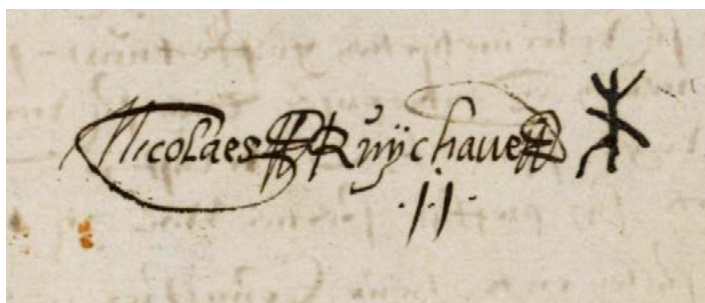 Nicolaes Ruÿchauer